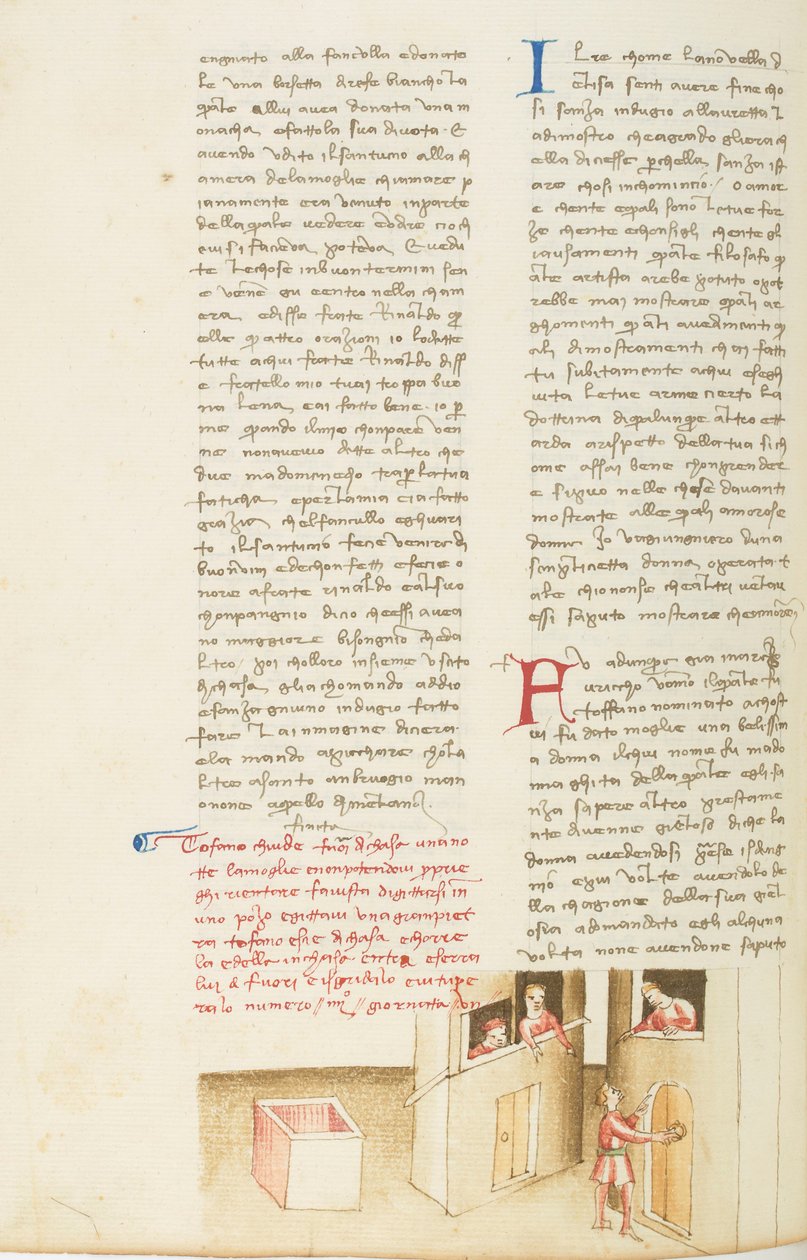 engniato alla fanculla edonato
le una borsetta direfe biancho la
quale allui avea donata una m
onacha efattola sua divota. E
avendo udito il santucio alla ch
amera dela moglie chiamare p
ianamente era venuto inparte
della quale vedere eodre cioch
evisi faceva poteva E vedu
te le chose inbuon termini sen
e venne gu eentro nella cham
era edisse frate Rinaldo qu
elle quattro orazioni io lodette
tutte achui frate Rinaldo diss
e fratello mio tuai troppa buo
na lena eai fatto bene. io per
me quando ilmio chonpare ven
ne nonavevo ditte altro che
due madomenedio traperlatua
faticha eperlamia cia fatto
grazia chelfancullo eghuari
to ilsantucio fecie venire di
buonvini edechonfetti efecie o
nore afrate rinaldo ealsuo
chonpangnio dicio cheessi avea
no maggiore bisongnio cheda
ltro. poi cholloro insieme uscito
dichasa gliachomando addio
esanza gniuno indugio fatto
fare la inmagine dicera
ela mando apicchare cholla
ltre asanto anbruogio man
onone aquello dimelano.
finita
Tofano chiude fuori dichasa una no
tte lamoglie enonpotendovi per prie
ghi rientare favista digittarsi in
uno pozo egittavi una gran piet
ra tofano escie dichasa echorre
la edella inchasa entra eserra
lui di fuori e isgridalo evitupe
ralo numero // iiij° // giornata // vii
IL re chome la novella d
elisa senti avere fine cho
si sanza indugio allauretta
adimostro cheagrado gliera ch
ella dicesse perchella sanza ist
are chosi inchomincio. O amor
e chente equali sono le tue for
ze chente echonsigli chente gl
iavisamenti quale filosafo qu
ale artista arebe potuto o pot
rebbe mai mostrare quali ar
ghomenti quali avedimenti qu
ali dimostramenti chai fatti
tu subitamente achui esegh
uita le tue arme cierto la
dottrina diqualunque altro ett
arda arispetto dellatua sich
ome assai bene chonprender
e si puo nelle chose davanti
mostrate alle quali amorose
donne Io vagiungniero duna
senplicetta donna operata t
ale chiononse chealtri velav
essi saputo mostrare cheamore
FU adunque gia inarezzo
uriccho uomo ilquale fu
toffano nominato achost
ui fu dato moglie una belissim
a donna ilchui nome fu mado
nna ghita della quale egli sa
nza sapere altro prestame
nte divenne gieloso diche la
donna avedendosi prese isdeng
nio epiu volte avendolo de
lla chagione della sua giel
osia adomandato egli alchuna
volta none avendone saputo